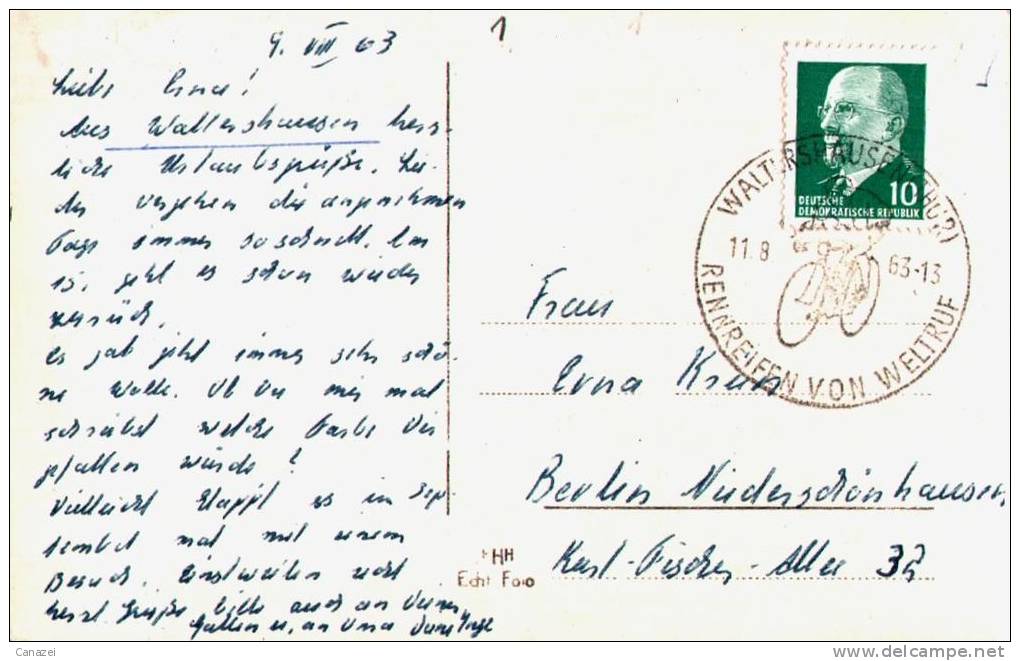 1
9. VIII 63
Liebe Erna!
Aus Waltershausen herz-
liche Urlaubsgrüße. Lei-
der vergehen die angenehmen
Tage immer so schnell. Am
15. geht es schon wieder
zurück.
Es gab jetzt immer sehr schö-
ne Wolle. Ob Du mir mal
schreibst welche Farbe Dir
gefallen würde?
Vielleicht klappt es im Sep-
tember mal mit einem
Besuch. Einstweilen recht
herzl. Grüße bitte auch an Deinen
Gatten u. an Deine Inge
DEUTSCHE
DEMOKRATISCHE REPUBLIK
10
WALTERSHAUSEN (THÜR)
11.8 63-13
RENNREIFEN VON WELTRUF
Frau
Erna
Berlin Niederschönhausen
Allee 32
HH
Echt Foto
Canazei
www.delcampe.net